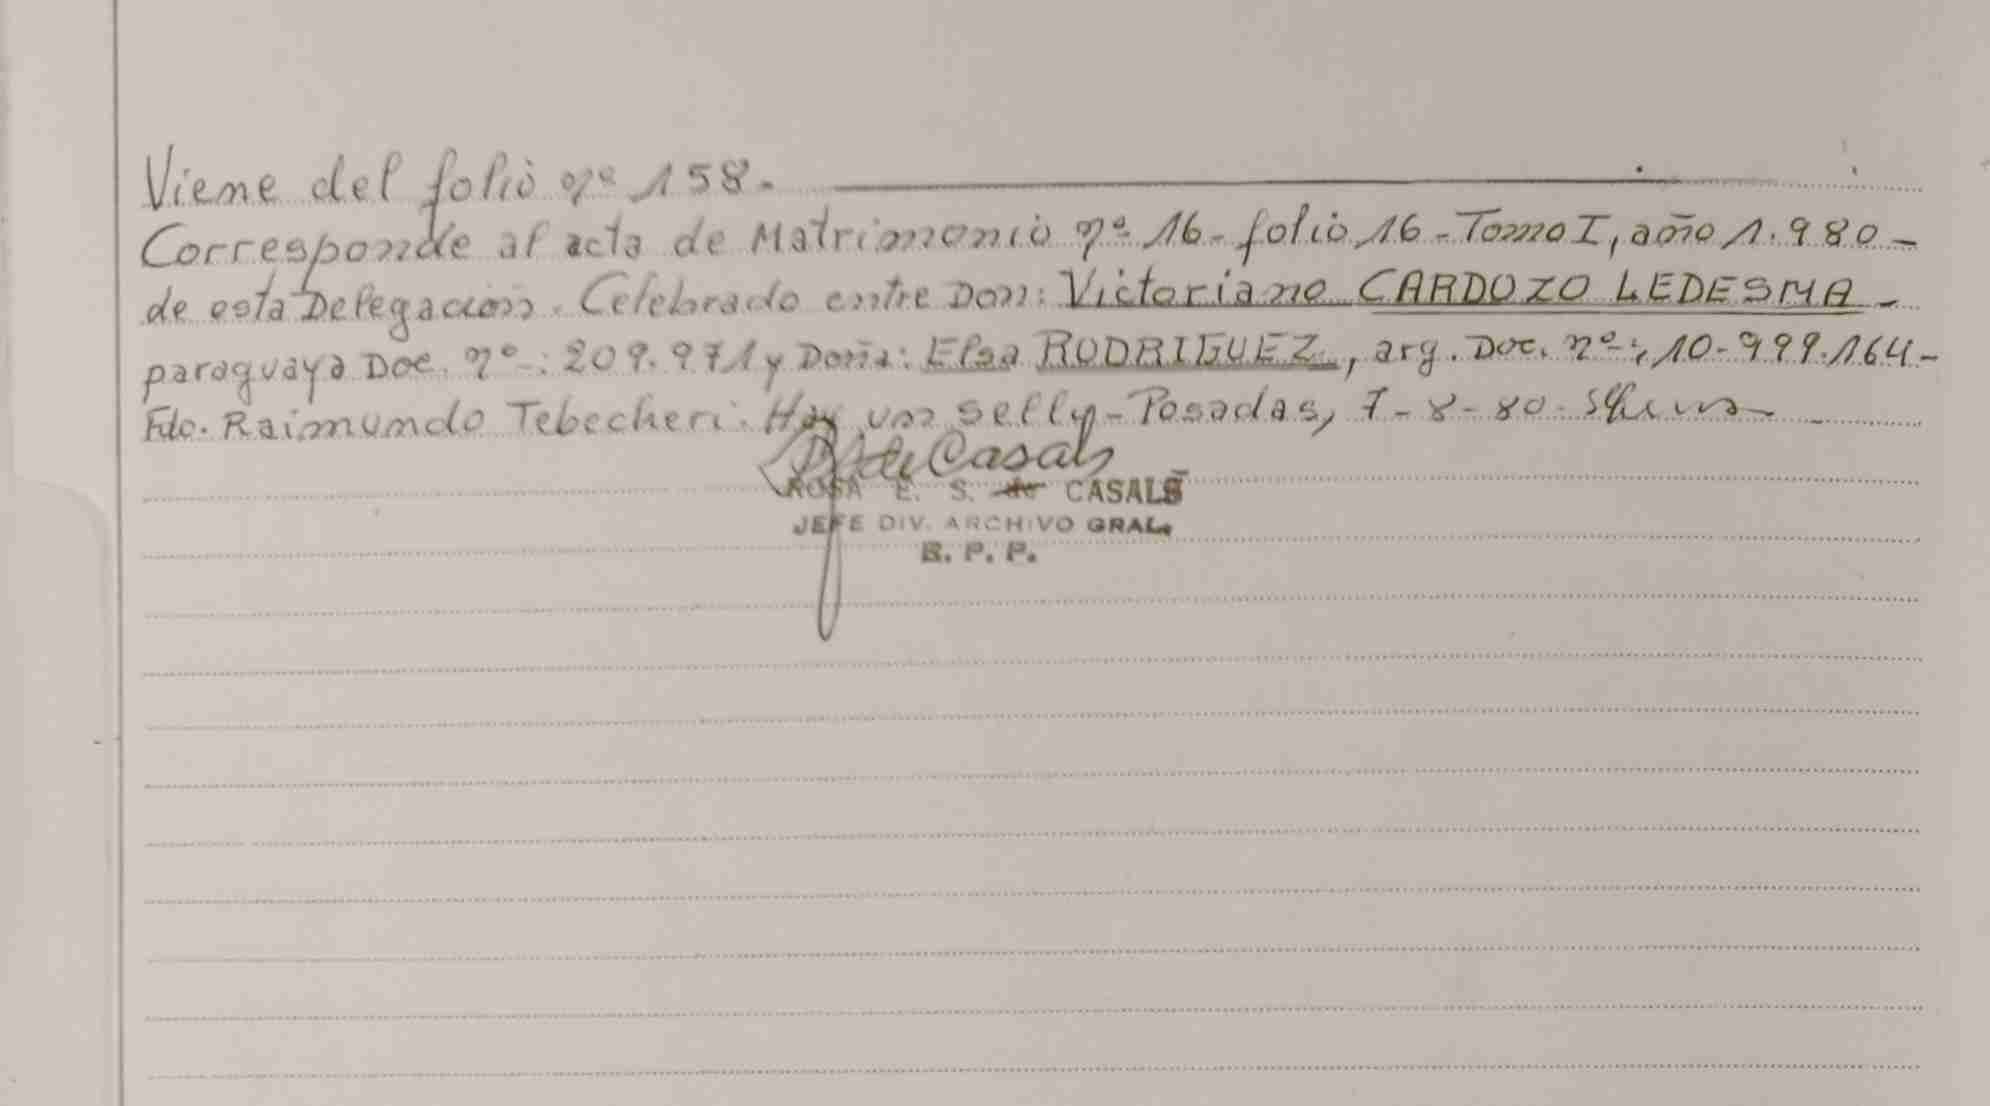 Viene del folio nº 158.
Corresponde al acta de Matrimonio nº 16 - folio 16 - Tomo I, año 1.980 -
de esta Delegación. Celebrado entre Don: Victoriano CARDOZO LEDESMA -
paraguaya Doc. nº: 209.971 y Doña: Elsa RODRIGUEZ, arg. Doc. nº: 10-999.164 -
Fdo. Raimundo Tebecheri. Hay un sello - Posadas, 7-8-80.
de Casals
ROSA E. S. de CASALS
JEFE DIV. ARCHIVO GRAL.
R. P. P.